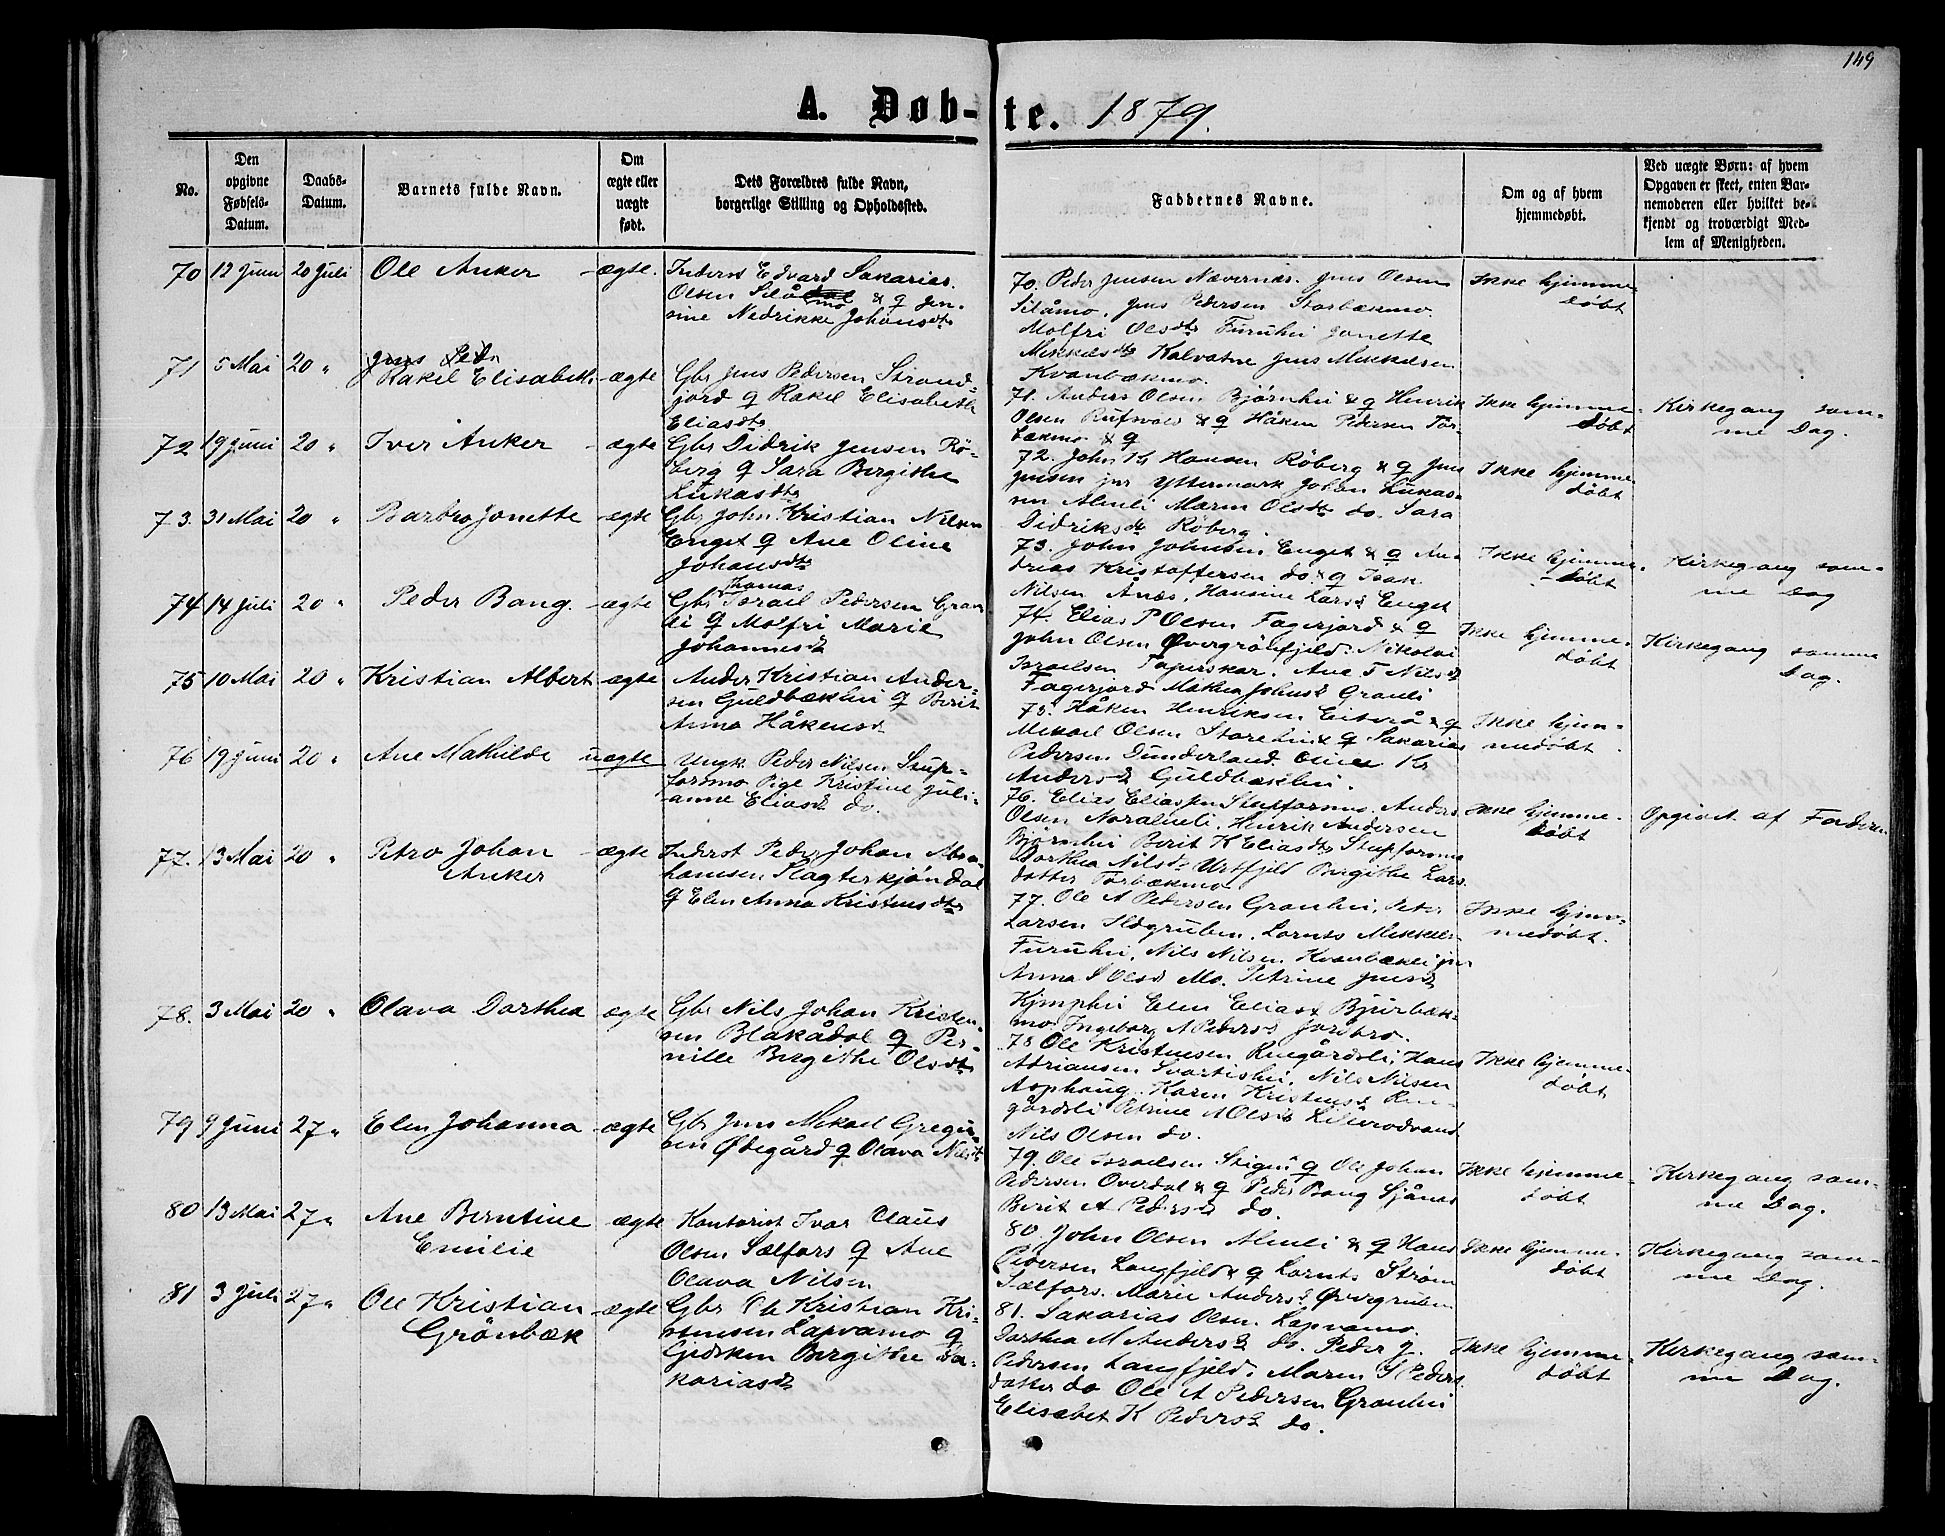 149
A. Døb-te. 1879.
No.
Den opgivne Fødsels-Datum.
Daabs-Datum.
Barnets fulde Navn.
Om ægte eller uægte født.
Dets Forældres fulde Navn, borgerlige Stilling og Opholdssted.
Faddernes Navne.
Om og af hvem hjemmedøbt.
Ved uægte Børn: af hvem Opgaven er skeet, enten Barnemoderen eller hvilket bekjendt og troværdigt Medlem af Menigheden.
70 12 Juni 20 Juli Ole Anker ægte. Inderst Edvard Sakarias.
Olsen Silåmo & q Jen-
sine Nedrikke Johansdtr
70. Peder Jensen Nævernæs. Jens Olsen
Silåmo, Jens Pedersen Storbækmo.
Molfri Olsdtr Furuhei Janette
Mikkelsdtr Kalvatne Jens Mikkelsen
Kvanbækmo.
Ikke hjemme
døbt
71 5 Mai 20 " Jens Peder
Rakel Elisabeth ægte Gbr Jens Pedersen Strand-
jord q Rakel Elisabeth
Eliasdtr
71. Anders Olsen Bjørnhei & q Henrik
Olsen Rufsvold & q Håken Pedersen Tør-
bækmo & q
Ikke hjemme-
døbt
Kirkegang sam-
me Dag.
72 19 Juni 20 " Iver Anker ægte Gbr Didrik Jensen Rö-
berg q Sara Bergithe
Lukasdtr
72. John Kr Hansen Röberg & q Jens
Jensen jnr Yttermark Johan Lukas-
sen Almli Maren Olsdtr do. Sara
Didriksdtr Röberg.
Ikke hjemme
døbt
73. 31 Mai 20 " Barbro Janette ægte Gbr John Kristian Nilsen
Enget q Ane Oline
Johansdtr
73. John Johnsen Enget & q An-
dreas Kristoffersen do. & q Isak
Nilsen Anæs, Hansine Larsd Enget
Ikke hjemme-
døbt
Kirkegang sam-
me Dag
74 14 Juli 20 " Peder Bang. ægte Gbr Thomas Israel Pedersen Gran
li q Molfri Marie
Johannesd
74. Elias P Olsen Fagerjord & q
John Olsen Øvergrönfjeld. Nikolai
Israelsen Taperskar. Ane T Nilsd
Fagerjord Malena Johnsd Granli
Ikke hjemme-
døbt
Kirkegang samme
Dag.
75 10 Mai 20 " Kristian Albert ægte Anders Kristian Ander-
sen Guldbækhei q Berit
Anna Håkensd
75. Håken Henriksen Eiterå & q
Mikael Olsen Storehei & q Sakarias
Pedersen Dunderland Oline Kr
Andersd Guldbækhei.
Ikke hjem-
medøbt
76 19 Juni 20 " Ane Mathilde uægte Ungk. Peder Nilsen Stup-
forsmo Pige Kristine Juli-
anne Eliasd do.
76. Elias Eliassen Stupforsmo. Anders
Olsen Noralneli. Henrik Andersen
Bjørnhei Berit K Eliasdtr Stupforsmo
Dorthea Nilsdtr Urtfjeld Bergithe Lars
datter Tørbækmo
Ikke hjemme-
døbt
Opgivet af Faderen
77. 13 Mai 20 " Petro Johan
Anker ægte Inderst Peder Johan Abra-
hamsen Slagterkjøndal
q Elen Anna Kristensdtr
77. Ole A Pedersen Granhei, Peter
Larsen Ildgruben. Lornts Mikkels.
Furuhei. Nils Nilsen Kvanbækli jnr
Anna S Olsd Mo. Petrine Jensd
Kjemphei Elen Eliasd Bjurbæk-
mo Ingeborg A Pedersd Jordbro.
Ikke hjem-
medøbt.
78. 3 Mai 20 " Olava Dorthea ægte Gbr Nils Johan Kristen-
sen Blakådal q Per-
nille Bergithe Olsdtr
78 Ole Kristensen Ringårdsli, Hans
Adriansen Svartishei. Nils Nilsen
Asphaug. Karen Kristensd Rin-
gårdsli Petrine A Olsd Lillerødvand
Nils Olsen do.
Ikke hjemme-
døbt
79 9 Juni 27 " Elen Johanna ægte Gbr Jens Mikael Gregu-
sen Ødegård q Olava Nilsd
79. Ole Israelsen Stigen q Ole Johan
Pedersen Overdal & q Peder Bang Sjånæs
Berit A Pedersd do.
Ikke hjemme-
døbt
Kirkegang sam-
me Dag.
80 13 Mai 27 " Ane Berntine
Emilie ægte Kontorist Ivar Claus
Olsen Sælfors q Ane
Olava Nilsen
80 John Olsen Almli & q Hans
Pedersen Langfjeld & q Lornts Strøm
Sælfors. Marie Andersd Øvergruben
Ikke hjemme-
døbt
Kirkegang sam-
me Dag.
81 3 Juli 27 " Ole Kristian
Grönbæk ægte Gbr Ole Kristian Kri-
stensen Lapvamo q
Gjedsken Bergithe Sa-
kariasd
81. Sakarias Olsen Lapvamo.
Dorthea M Andersd do. Peder J.
Pedersen Langfjeld. Maren S Peders
datter do Ole A Pedersen Granhei
Elisabet K Pedersd do.
Ikke hjemme-
døbt
Kirkegang sam-
me Dag.